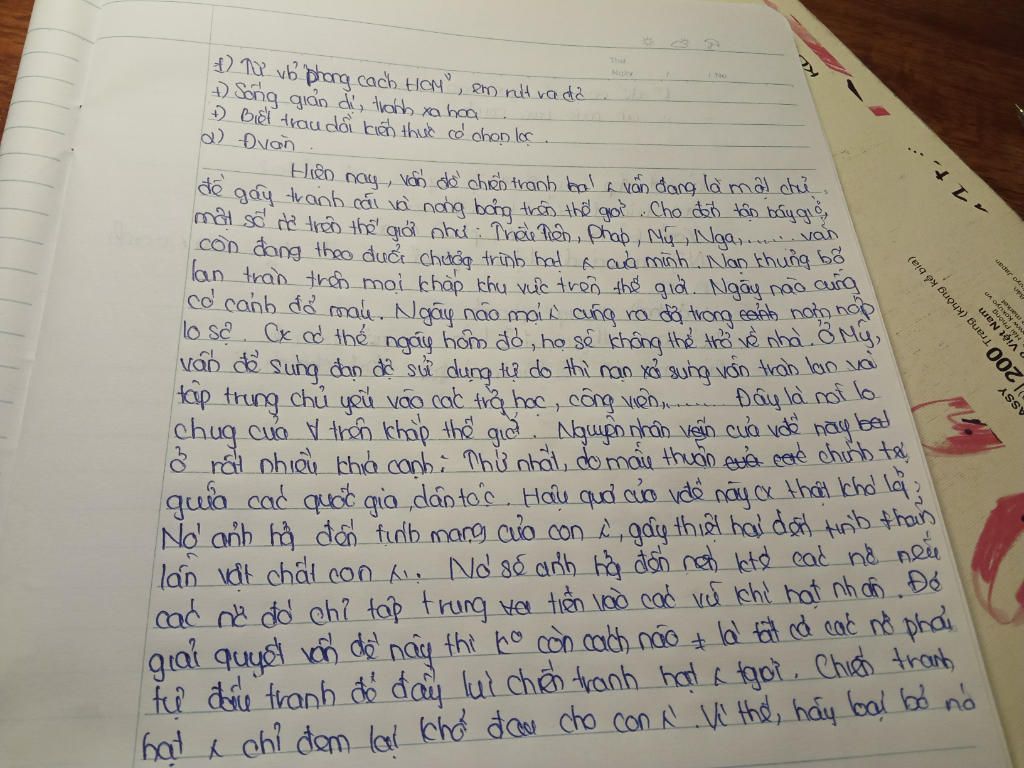 +) Từ vb "phong cách HCM", em rút ra đc
+) Sống giản dị, tránh xa hoa.
+) Biết trau dồi kiến thức có chọn lọc.
d) Đvăn.
Hiện nay, vấn đề chiến tranh hạt ʎ vẫn đang là một chủ
đề gây tranh cãi và nóng bỏng trên thế giới. Cho đến tận bây giờ,
một số nc trên thế giới như: Triều Tiên, Pháp, Mỹ, Nga,...... vẫn
còn đang theo đuổi chương trình hạt ʎ của mình. Nạn khủng bố
lan tràn trên mọi khắp khu vực trên thế giới. Ngày nào cũng
có cảnh đổ máu. Ngày nào mọi ʎ cũng ra đg trong nơm nớp
lo sợ. Cx có thể ngày hôm đó, họ sẽ không thể trở về nhà. Ở Mỹ,
vấn đề súng đạn đc sử dụng tự do thì nạn xả súng vẫn tràn lan và
tập trung chủ yếu vào các trg học, công viên,...... Đây là nỗi lo
chug của ∀ trên khắp thế giới. Nguyên nhân của vđề này
ở rất nhiều khía cạnh: Thứ nhất, do mâu thuẫn chính trị
giữa các quốc gia, dân tộc. Hậu quả của vđề này cx thật khó lg;
Nó ảnh hg đến tính mạng của con ʎ, gây thiệt hại đến tinh thần
lẫn vật chất con ʎ. Nó sẽ ảnh hg đến nền ktế các nc nếu
các nc đó chỉ tập trung tiền vào các vũ khí hạt nhân. Để
giải quyết vấn đề này thì ko còn cách nào ≠ là tất cả các nc phải
tự đấu tranh để đẩy lùi chiến tranh hạt ʎ tgiới. Chiến tranh
hạt ʎ chỉ đem lại khổ đau cho con ʎ. Vì thế, hãy loại bỏ nó
Thứ
Ngày / / No
200 Trang (không kể bìa)
Việt Nam
Hải Phòng